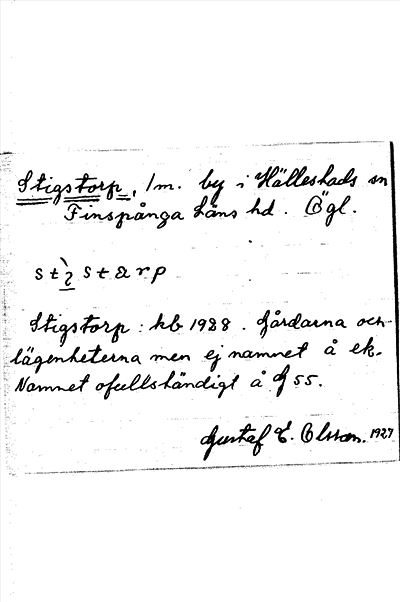 Stigstorp, 1 m. by i Hällestads sn
Finspånga Läns hd. Ögl.
Stigstorp: kb 1928. Gårdarna och
lägenheterna men ej namnet å ek.
Namnet ofullständigt å G 55.
Gustaf E. Olsson. 1927